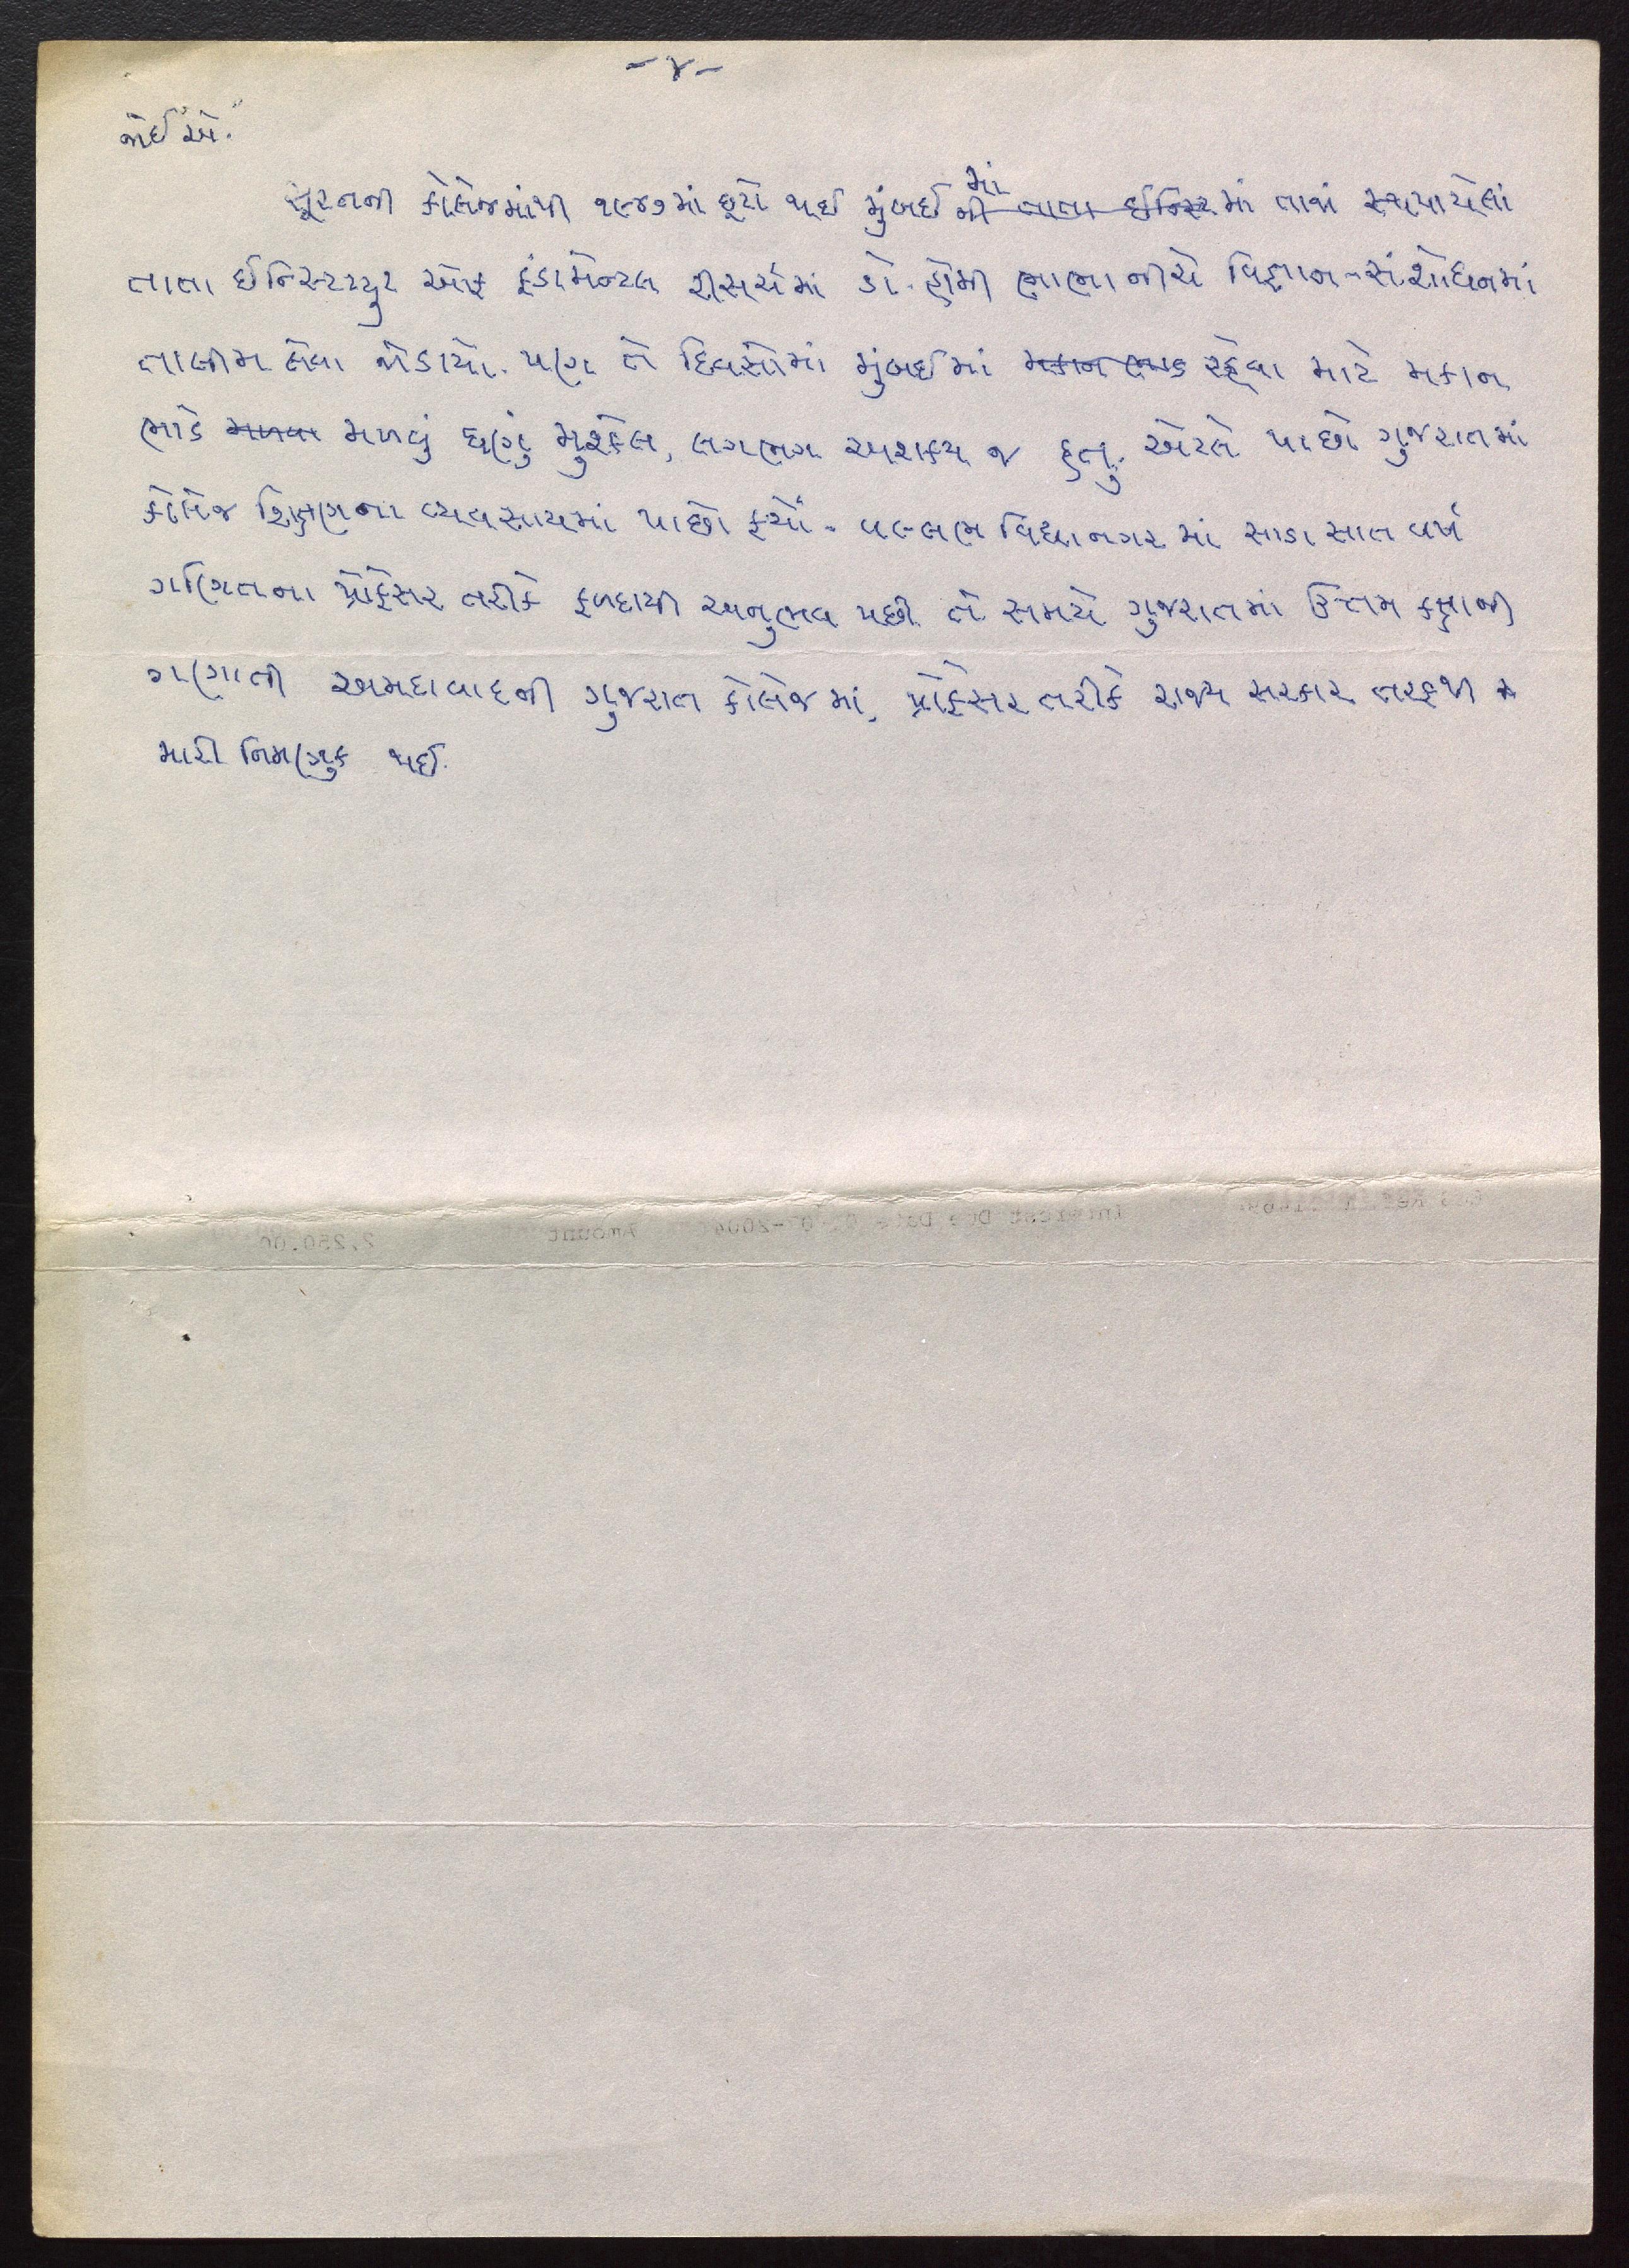 -૪-
જોઈએ."
સૂરતની કોલેજમાંથી ૧૯૪૭માં છૂટો થઈ મુંબઈમાં ની તાતા ઈન્સ્ટિમાં તાજાં સ્થપાયેલાં
તાતા ઈન્સ્ટિટ્યુટ ઓફ ફંડામેન્ટલ રીસર્ચમાં ડો. હોમી ભાભા નીચે વિજ્ઞાન-સંશોધનમાં
તાલીમ લેવા જોડાયો. પણ તે દિવસોમાં મુંબઈમાં મકાન ભાડે રહેવા માટે મકાન
ભાડે મળવા મળવું ઘણું મુશ્કેલ, લગભગ અશક્ય જ હતું. એટલે પાછો ગુજરાતમાં
કોલેજ શિક્ષણના વ્યવસાયમાં પાછો ફર્યો. વલ્લભ વિદ્યાનગરમાં સાડા સાત વર્ષ
ગણિતના પ્રોફેસર તરીકે ફળદાયી અનુભવ પછી તે સમયે ગુજરાતમાં ઉત્તમ કક્ષાની
ગણાતી અમદાવાદની ગુજરાત કોલેજમાં, પ્રોફેસર તરીકે રાજ્ય સરકાર તરફથી
મારી નિમણુક થઈ.